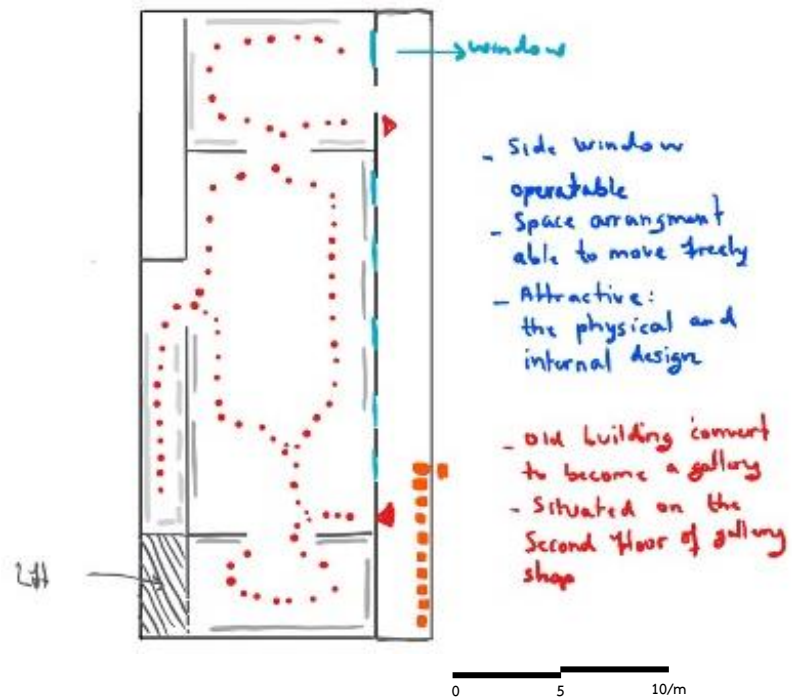 window
- Side window
operatable
- Space arrangment
able to move freely
- Attractive:
the physical and
internal design
- Old building convert
to become a gallery
- Situated on the
Second floor of gallery
shop
0 5 10/m